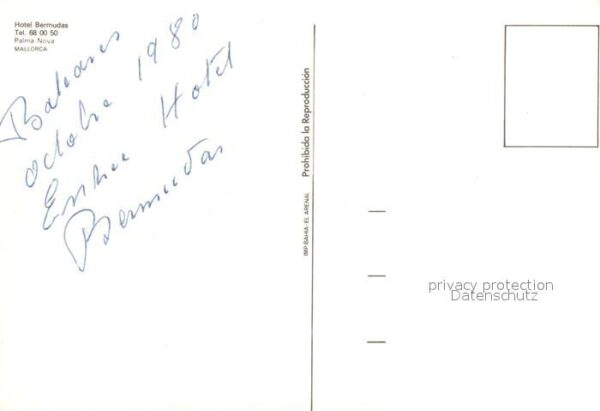 Hotel Bermudas
Tel. 68 00 50
Palma Nova
MALLORCA
Baleares
octobre 1980
Hotel
Bermudas
IMP. BAHIA - EL ARENAL
Prohibida la Reproducción
privacy protection
Datenschutz